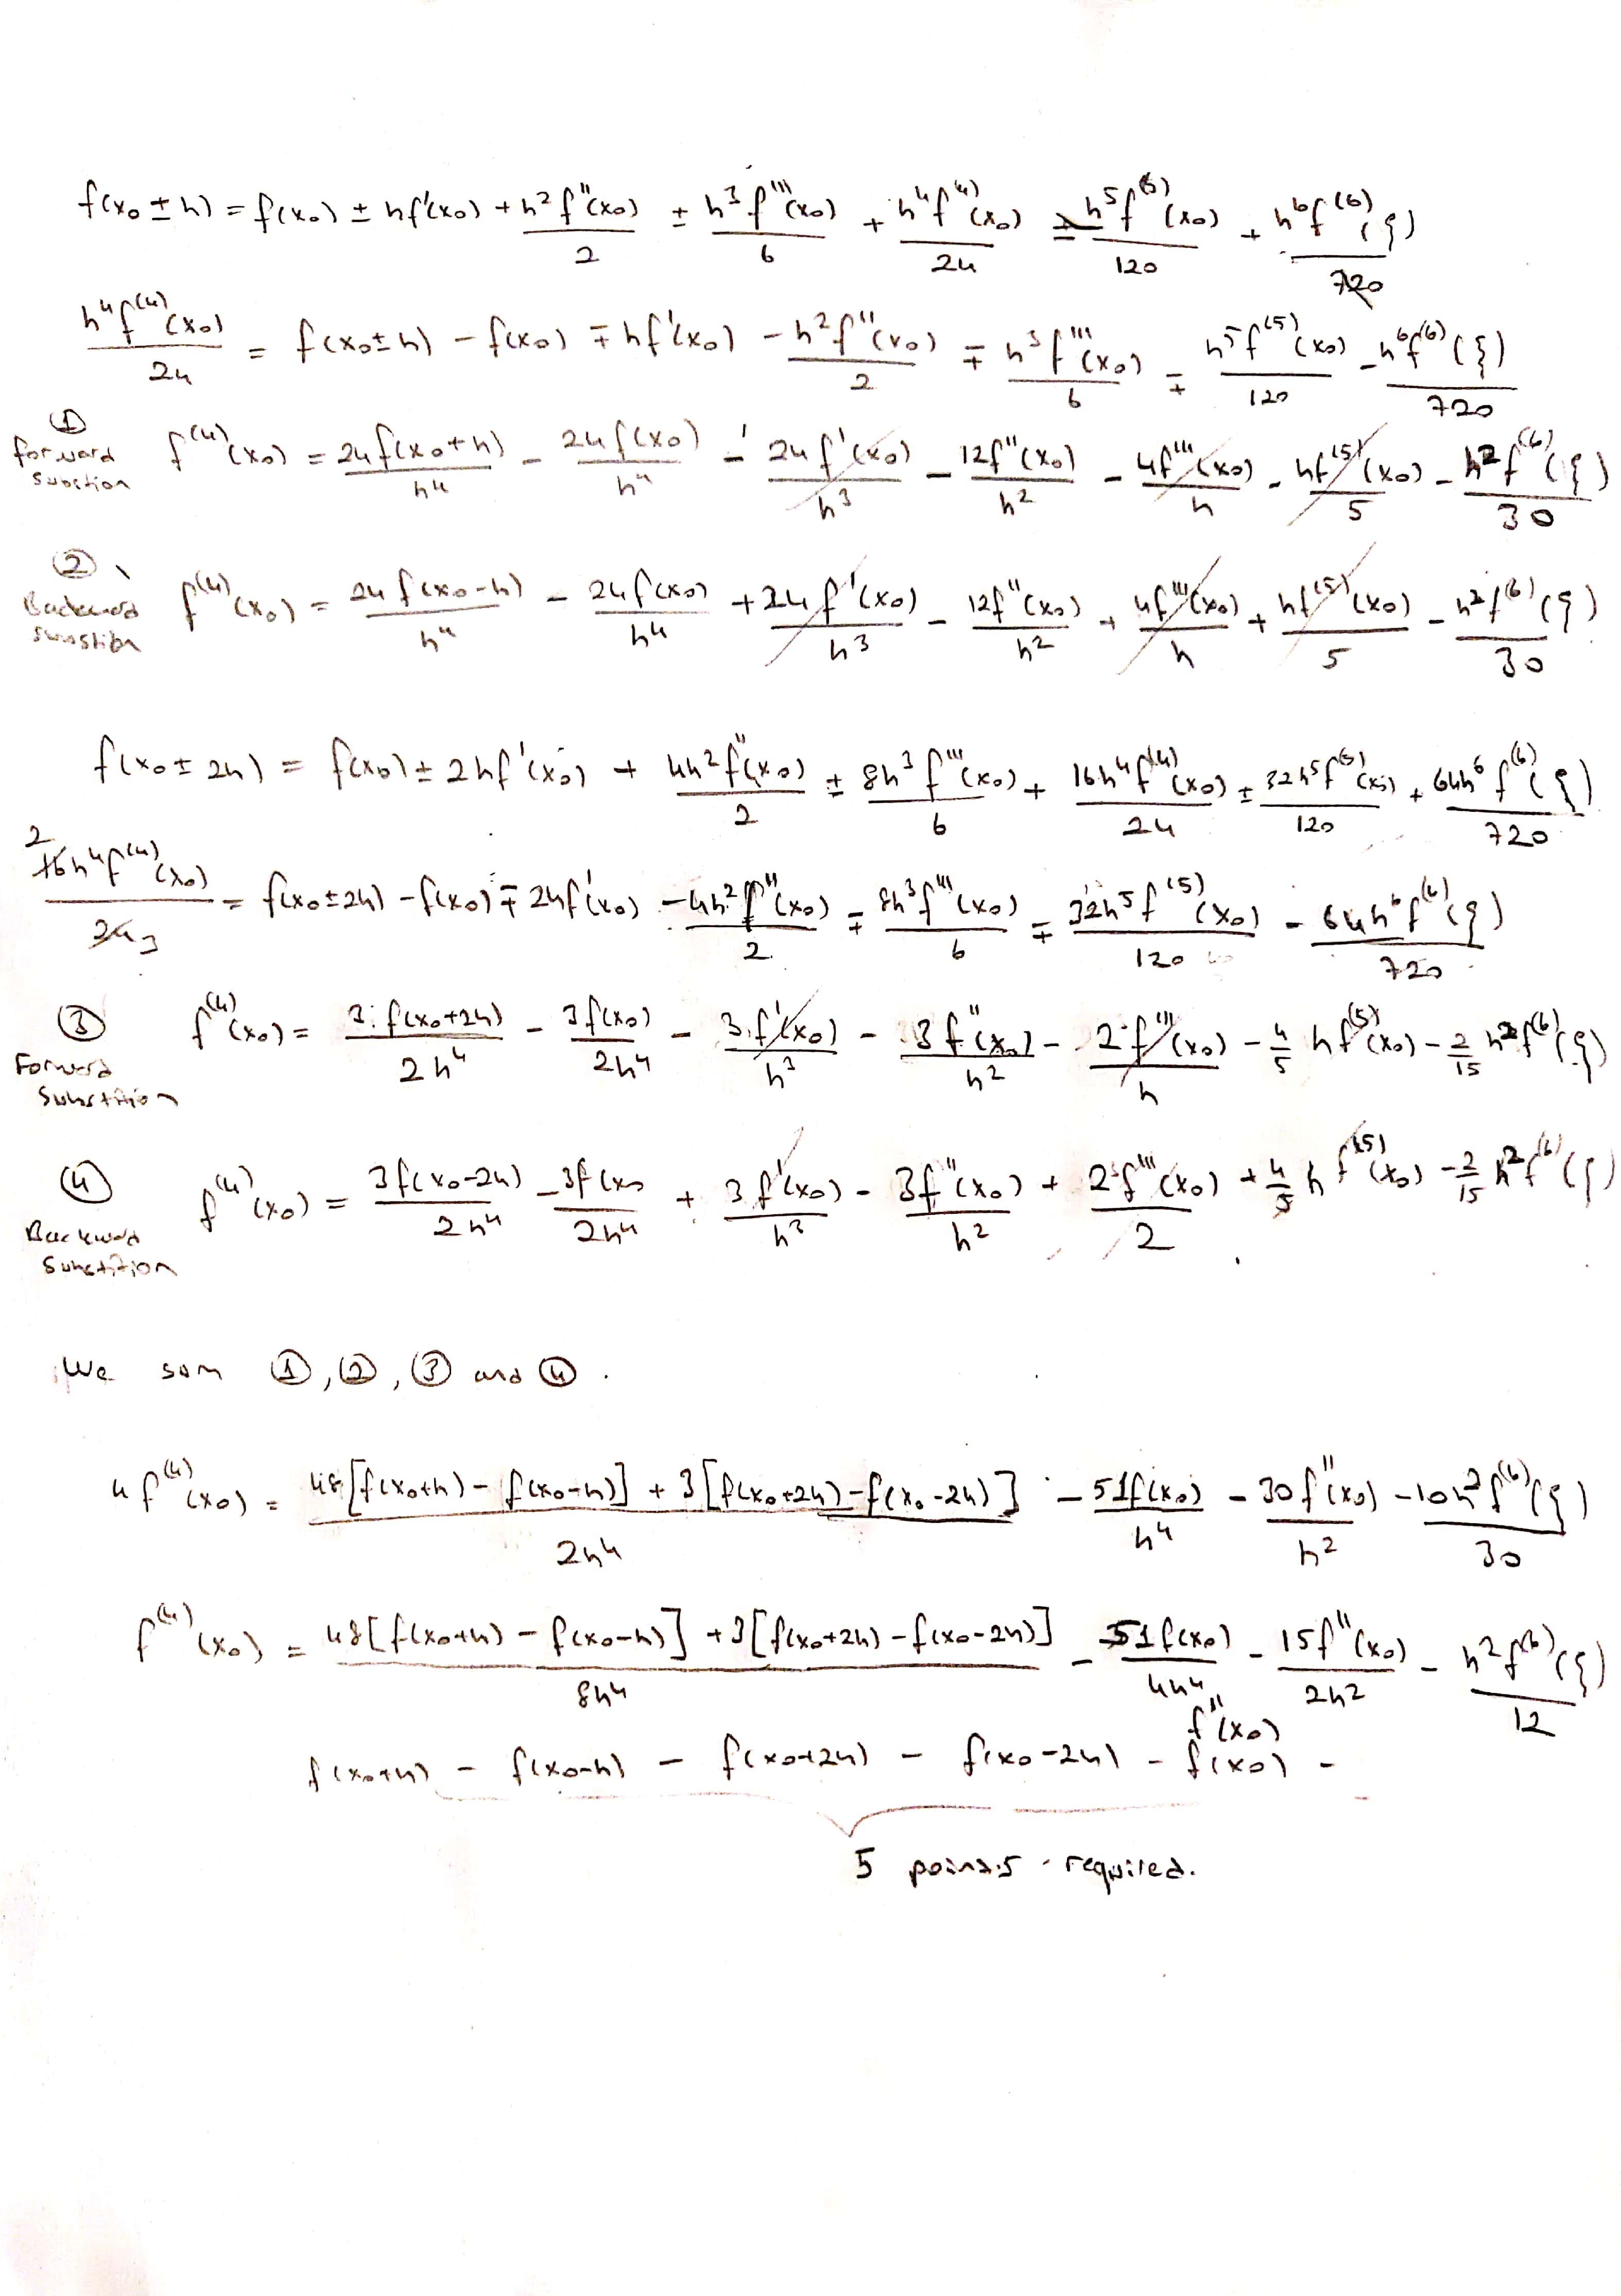 f(x₀ ± h) = f(x₀) ± hf'(x₀) + h²f''(x₀)/2 ± h³f'''(x₀)/6 + h⁴f⁽⁴⁾(x₀)/24 ± h⁵f⁽⁵⁾(x₀)/120 + h⁶f⁽⁶⁾(ξ)/720
h⁴f⁽⁴⁾(x₀)/24 = f(x₀±h) - f(x₀) ∓ hf'(x₀) - h²f''(x₀)/2 ∓ h³f'''(x₀)/6 ∓ h⁵f⁽⁵⁾(x₀)/120 - h⁶f⁽⁶⁾(ξ)/720
① forward f⁽⁴⁾(x₀) = 24f(x₀+h)/h⁴ - 24f(x₀)/h⁴ - 24f'(x₀)/h³ - 12f''(x₀)/h² - 4f'''(x₀)/h - hf⁽⁵⁾(x₀)/5 - h²f⁽⁶⁾(ξ)/30
② f⁽⁴⁾(x₀) = 24f(x₀-h)/h⁴ - 24f(x₀)/h⁴ + 24f'(x₀)/h³ - 12f''(x₀)/h² + 4f'''(x₀)/h + hf⁽⁵⁾(x₀)/5 - h²f⁽⁶⁾(ξ)/30
f(x₀ ± 2h) = f(x₀) ± 2hf'(x₀) + 4h²f''(x₀)/2 ± 8h³f'''(x₀)/6 + 16h⁴f⁽⁴⁾(x₀)/24 ± 32h⁵f⁽⁵⁾(x₀)/120 + 64h⁶f⁽⁶⁾(ξ)/720
2h⁴f⁽⁴⁾(x₀)/3 = f(x₀±2h) - f(x₀) ∓ 2hf'(x₀) - 4h²f''(x₀)/2 ∓ 8h³f'''(x₀)/6 ∓ 32h⁵f⁽⁵⁾(x₀)/120 - 64h⁶f⁽⁶⁾(ξ)/720
③ Forward f⁽⁴⁾(x₀) = 3f(x₀+2h)/2h⁴ - 3f(x₀)/2h⁴ - 3f'(x₀)/h³ - 3f''(x₀)/h² - 2f'''(x₀)/h - 4/5 hf⁽⁵⁾(x₀) - 2/15 h²f⁽⁶⁾(ξ)
④ Backward f⁽⁴⁾(x₀) = 3f(x₀-2h)/2h⁴ - 3f(x₀/2h⁴ + 3f'(x₀)/h³ - 3f''(x₀)/h² + 2f'''(x₀)/2 + 4/5 h f⁽⁵⁾(x₀) - 2/15 h²f⁽⁶⁾(ξ)
We som ①, ②, ③ and ④.
4f⁽⁴⁾(x₀) = 48[f(x₀+h) - f(x₀-h)] + 3[f(x₀+2h) - f(x₀-2h)]/2h⁴ - 51f(x₀)/h⁴ - 30f''(x₀)/h² - 10h²f⁽⁶⁾(ξ)/30
f⁽⁴⁾(x₀) = 48[f(x₀+h) - f(x₀-h)] + 3[f(x₀+2h) - f(x₀-2h)]/8h⁴ - 51f(x₀)/4h⁴ - 15f''(x₀)/2h² - h²f⁽⁶⁾(ξ)/12
f''(x₀)
f(x₀+h) - f(x₀-h) - f(x₀+2h) - f(x₀-2h) - f(x₀) -
5 points required.